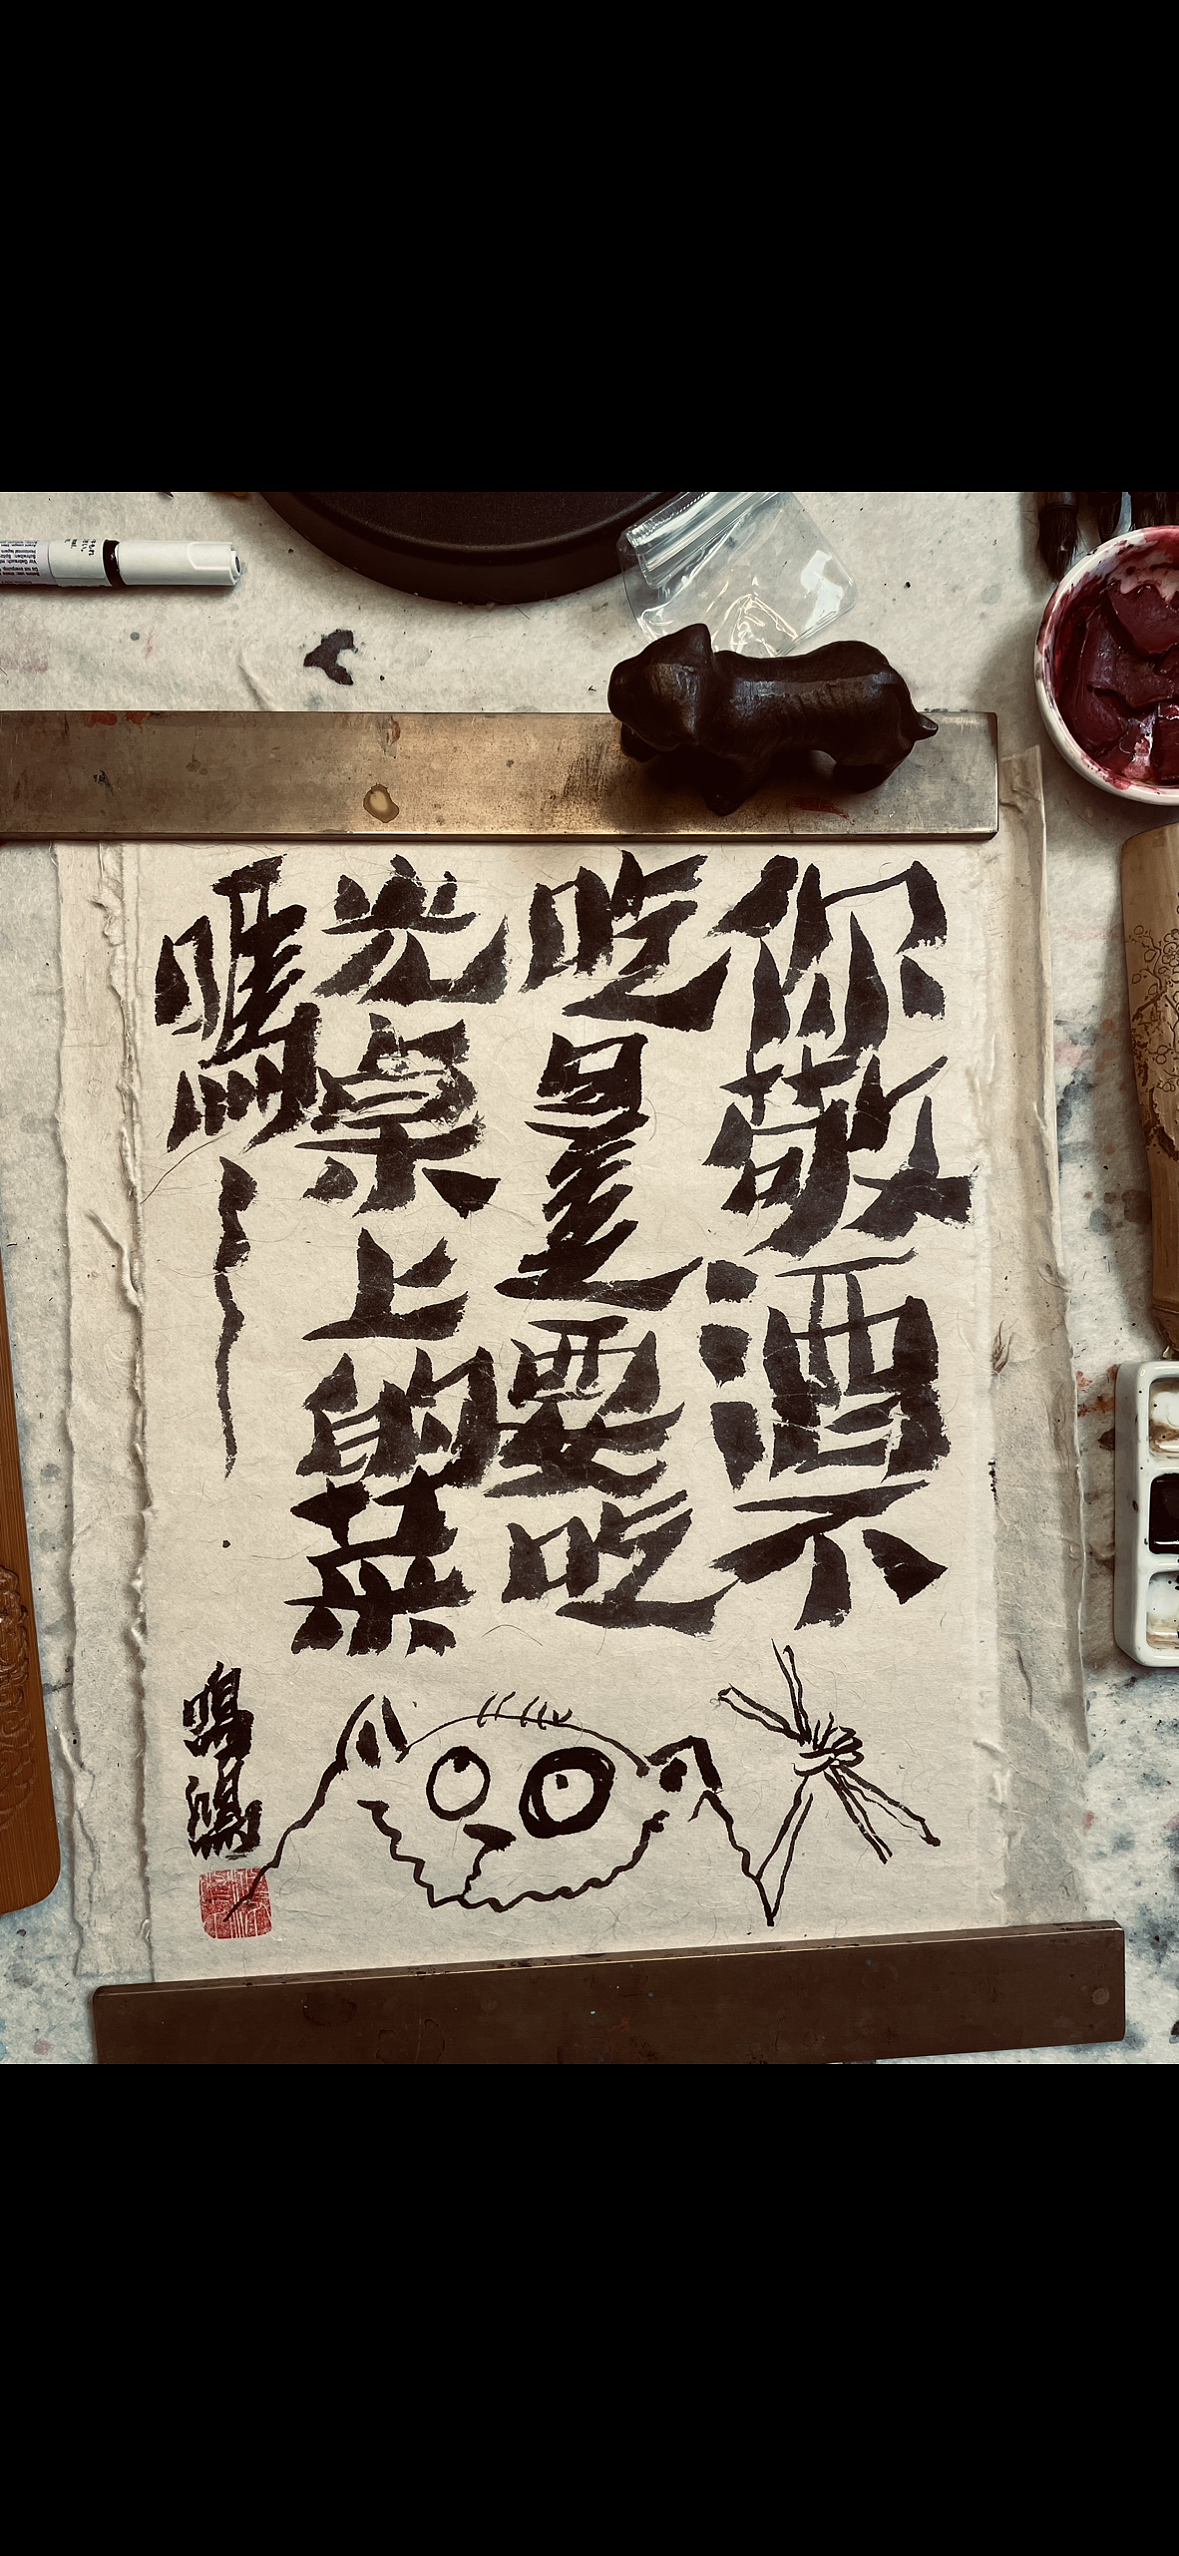 你敬酒不
吃是要吃
光桌上的菜
嗎！
鳴鴻